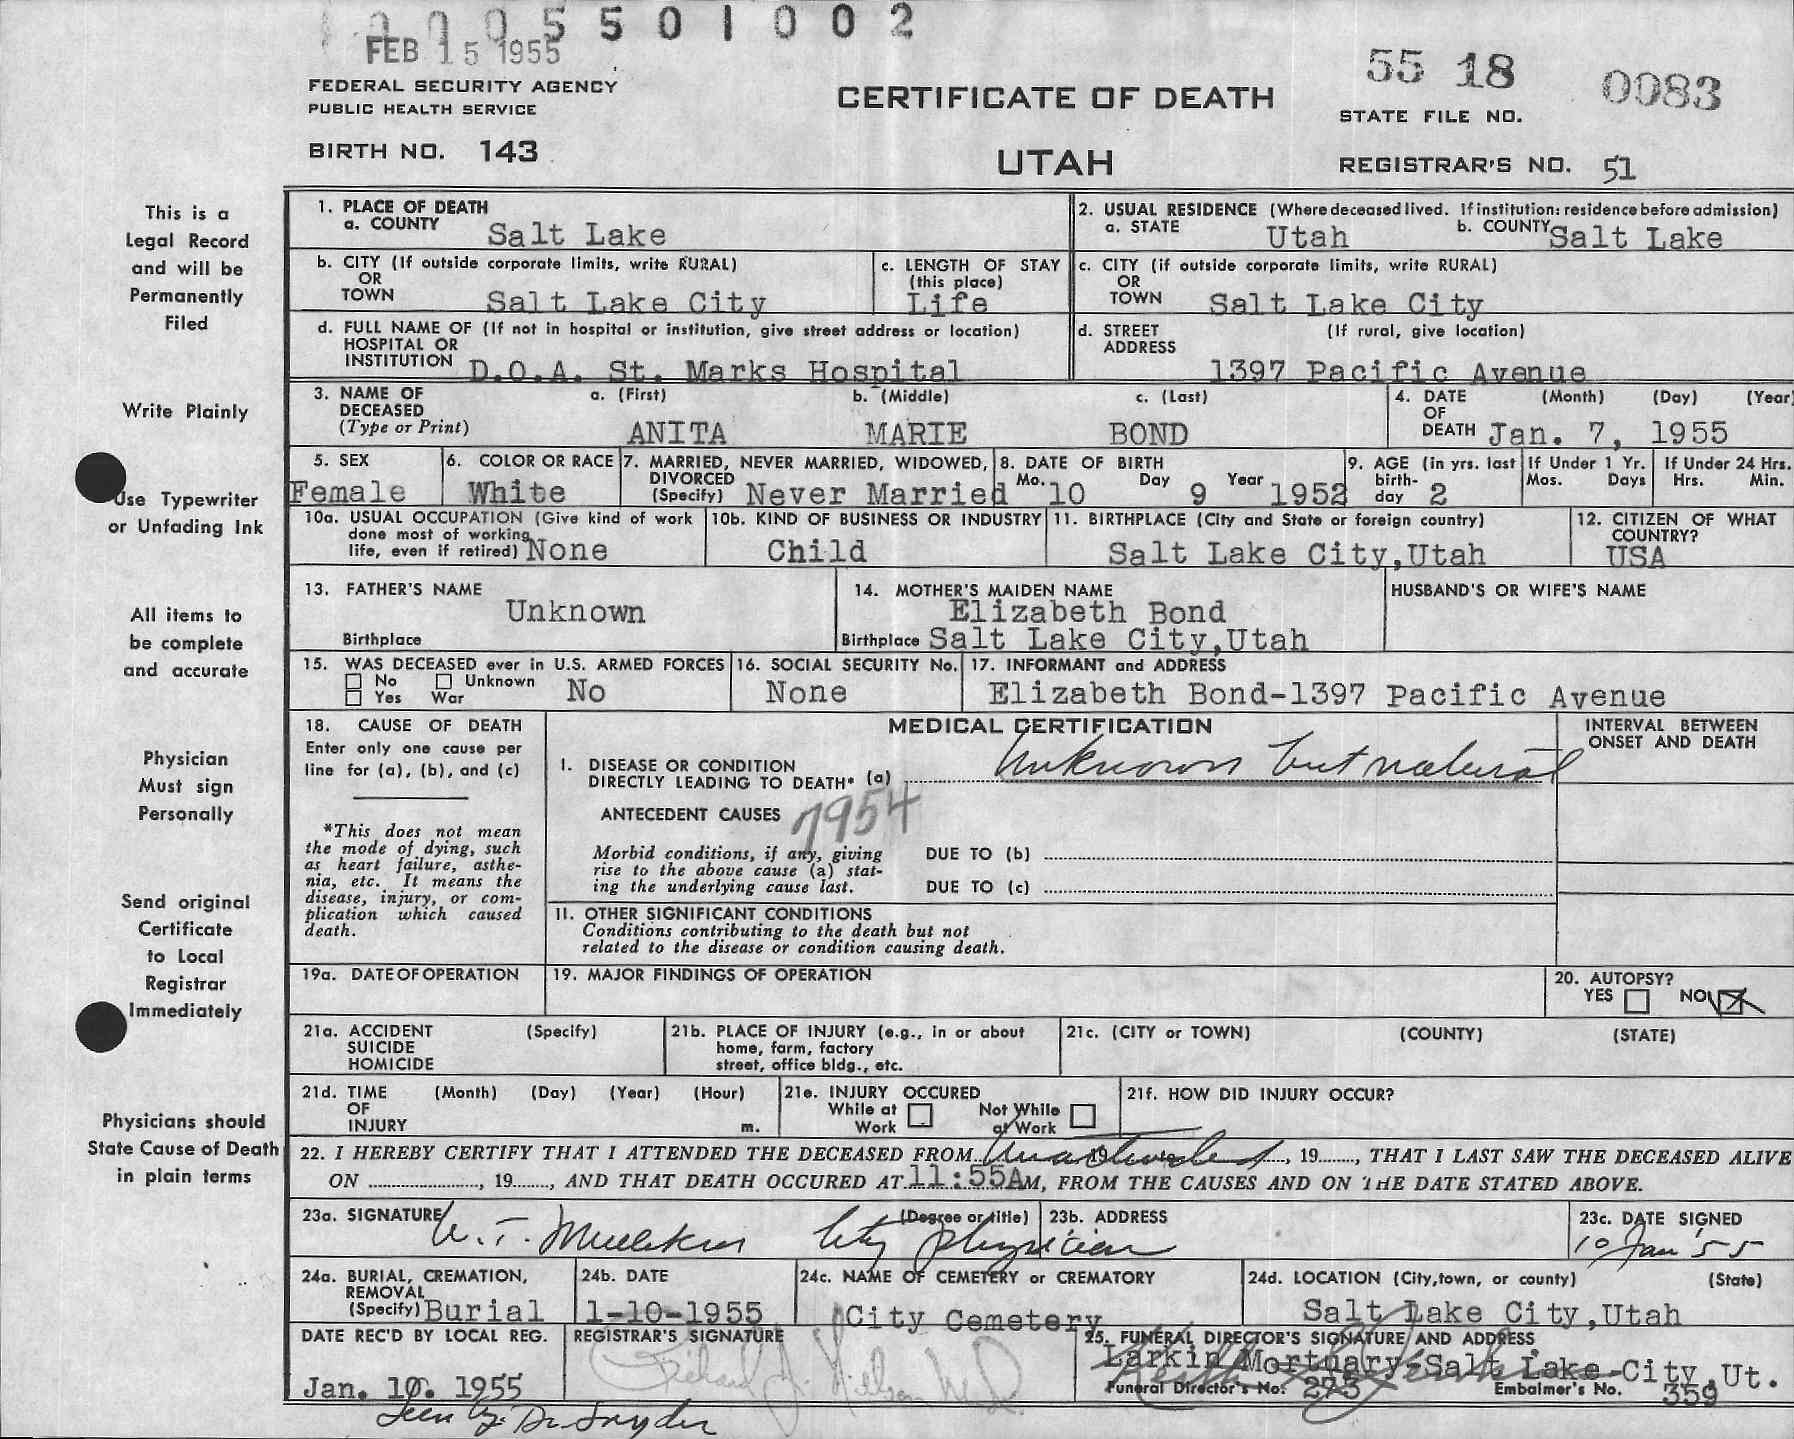 5501002
FEB 15 1955
55 18 0083
FEDERAL SECURITY AGENCY
PUBLIC HEALTH SERVICE
CERTIFICATE OF DEATH
STATE FILE NO.
BIRTH NO. 143
UTAH
REGISTRAR'S NO. 51
This is a
Legal Record
and will be
Permanently
Filed
Write Plainly
Use Typewriter
or Unfading Ink
All items to
be complete
and accurate
Physician
Must sign
Personally
Send original
Certificate
to Local
Registrar
Immediately
Physicians should
State Cause of Death
in plain terms
1. PLACE OF DEATH
a. COUNTY Salt Lake
2. USUAL RESIDENCE (Where deceased lived. If institution: residence before admission)
a. STATE Utah b. COUNTY Salt Lake
b. CITY (If outside corporate limits, write RURAL)
OR
TOWN Salt Lake City
c. LENGTH OF STAY
(this place)
Life
c. CITY (if outside corporate limits, write RURAL)
OR
TOWN Salt Lake City
d. FULL NAME OF (If not in hospital or institution, give street address or location)
HOSPITAL OR
INSTITUTION D.O.A. St. Marks Hospital
d. STREET (If rural, give location)
ADDRESS
1397 Pacific Avenue
3. NAME OF a. (First) b. (Middle) c. (Last)
DECEASED
(Type or Print) ANITA MARIE BOND
4. DATE (Month) (Day) (Year)
OF
DEATH Jan. 7, 1955
5. SEX
Female
6. COLOR OR RACE
White
7. MARRIED, NEVER MARRIED, WIDOWED,
DIVORCED
(Specify) Never Married
8. DATE OF BIRTH
Mo. 10 Day 9 Year 1952
9. AGE (in yrs. last
birth-
day 2
If Under 1 Yr.
Mos. Days
If Under 24 Hrs.
Hrs. Min.
10a. USUAL OCCUPATION (Give kind of work
done most of working
life, even if retired) None
10b. KIND OF BUSINESS OR INDUSTRY
Child
11. BIRTHPLACE (City and State or foreign country)
Salt Lake City,Utah
12. CITIZEN OF WHAT
COUNTRY?
USA
13. FATHER'S NAME
Unknown
Birthplace
14. MOTHER'S MAIDEN NAME
Elizabeth Bond
Birthplace Salt Lake City,Utah
HUSBAND'S OR WIFE'S NAME
15. WAS DECEASED ever in U.S. ARMED FORCES
No Unknown
Yes War No
16. SOCIAL SECURITY No.
None
17. INFORMANT and ADDRESS
Elizabeth Bond-1397 Pacific Avenue
18. CAUSE OF DEATH
Enter only one cause per
line for (a), (b), and (c)
*This does not mean
the mode of dying, such
as heart failure, asthe-
nia, etc. It means the
disease, injury, or com-
plication which caused
death.
MEDICAL CERTIFICATION
INTERVAL BETWEEN
ONSET AND DEATH
I. DISEASE OR CONDITION
DIRECTLY LEADING TO DEATH* (a) Unknown but natural
ANTECEDENT CAUSES 7954
Morbid conditions, if any, giving
rise to the above cause (a) stat-
ing the underlying cause last.
DUE TO (b)
DUE TO (c)
II. OTHER SIGNIFICANT CONDITIONS
Conditions contributing to the death but not
related to the disease or condition causing death.
19a. DATE OF OPERATION
19. MAJOR FINDINGS OF OPERATION
20. AUTOPSY?
YES NO
21a. ACCIDENT (Specify)
SUICIDE
HOMICIDE
21b. PLACE OF INJURY (e.g., in or about
home, farm, factory
street, office bldg., etc.
21c. (CITY or TOWN) (COUNTY) (STATE)
21d. TIME (Month) (Day) (Year) (Hour)
OF
INJURY m.
21e. INJURY OCCURED
While at Work Not While at Work
21f. HOW DID INJURY OCCUR?
22. I HEREBY CERTIFY THAT I ATTENDED THE DECEASED FROM Unattended, 19, 19, THAT I LAST SAW THE DECEASED ALIVE
ON, 19, AND THAT DEATH OCCURED AT 11:55AM, FROM THE CAUSES AND ON THE DATE STATED ABOVE.
23a. SIGNATURE (Degree or title)
City physician
23b. ADDRESS
23c. DATE SIGNED
10 Jan '55
24a. BURIAL, CREMATION,
REMOVAL
(Specify) Burial
24b. DATE
1-10-1955
24c. NAME OF CEMETERY or CREMATORY
City Cemetery
24d. LOCATION (City, town, or county) (State)
Salt Lake City,Utah
DATE REC'D BY LOCAL REG.
Jan. 10. 1955
REGISTRAR'S SIGNATURE
25. FUNERAL DIRECTOR'S SIGNATURE AND ADDRESS
Larkin Mortuary-Salt Lake City,Ut.
Funeral Director's No. 275 Embalmer's No. 359
Seen by Dr. Snyder